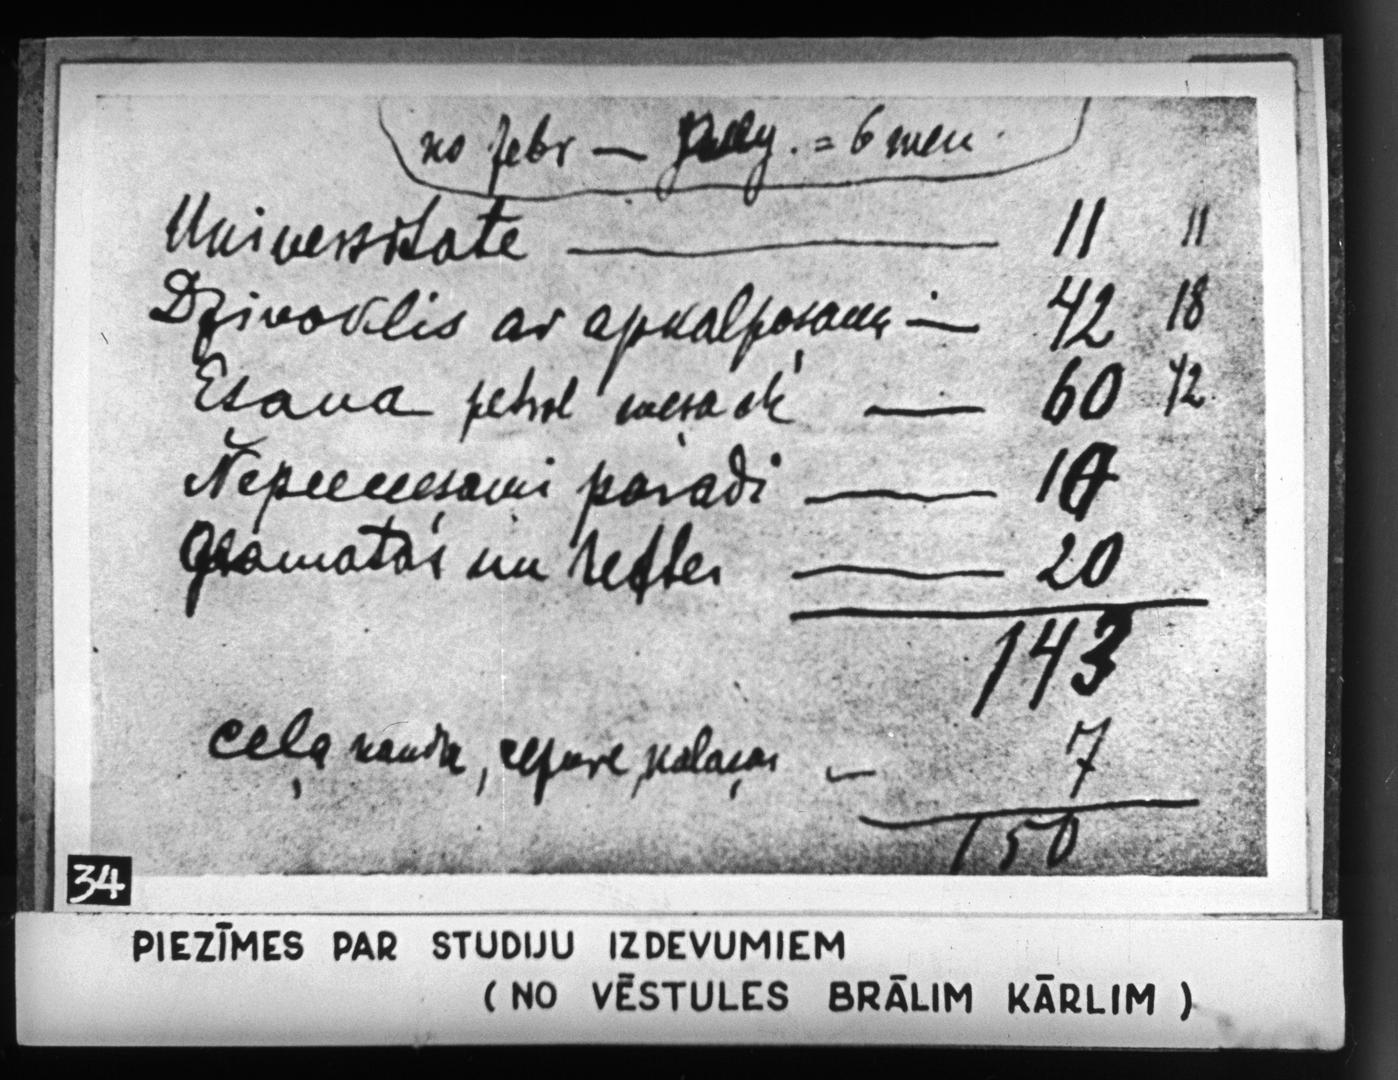 no febr — = 6 men.
Universitate — 11 11
Dzivoklis ar apkalposanu — 42 18
Esana petrol — 60 42
Nepieciesami paradi — 10
Gramatas un — 20
143
ceļa nauda, cepure, kalaças — 7
150
34
PIEZĪMES PAR STUDIJU IZDEVUMIEM
( NO VĒSTULES BRĀLIM KĀRLIM )